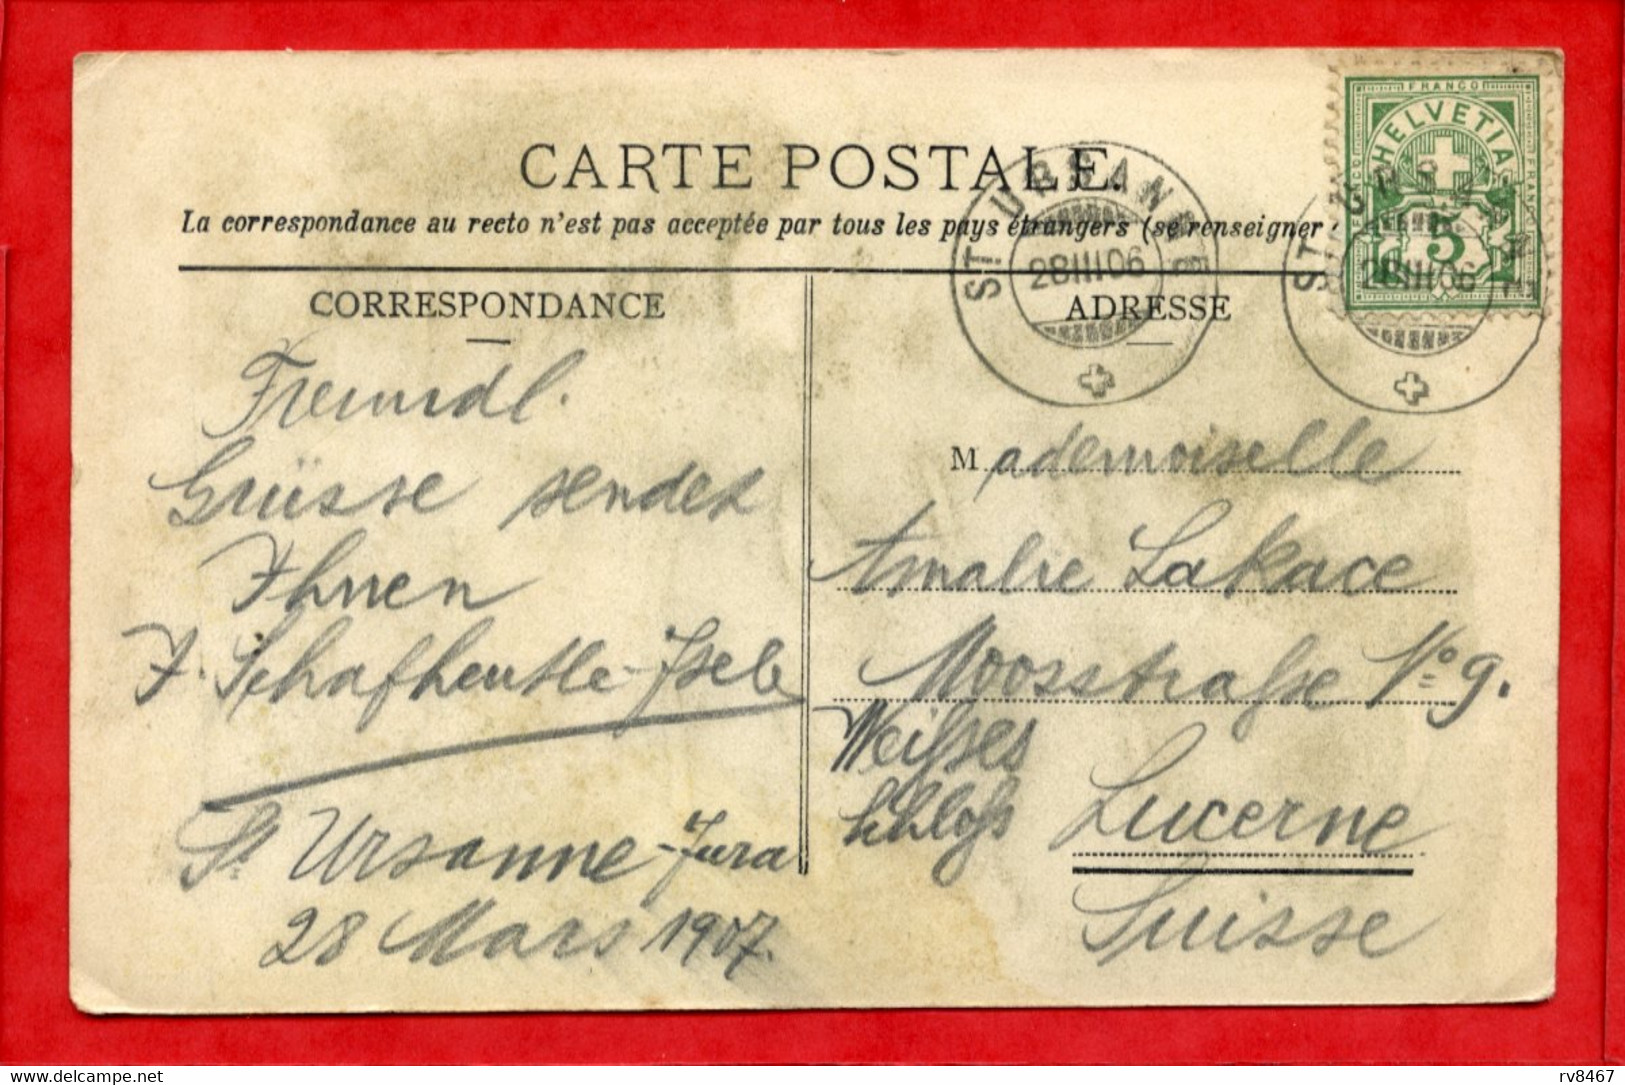 CARTE POSTALE.
La correspondance au recto n'est pas acceptée par tous les pays étrangers (se renseigner
CORRESPONDANCE
Freundl.
Grüsse sendet
Ihnen
F. Schafheutle-Isele
St Ursanne-Jura
28 Mars 1907.
ADRESSE
Mademoiselle
Amalie Lakace
Moosstraße No 9.
Weißes
Schloß
Lucerne
Suisse
FRANCO
HELVETIA
FRANCO
5
ST. URSANNE
28III06
ST. URSANNE
28III06
delcampe.net
rv8467